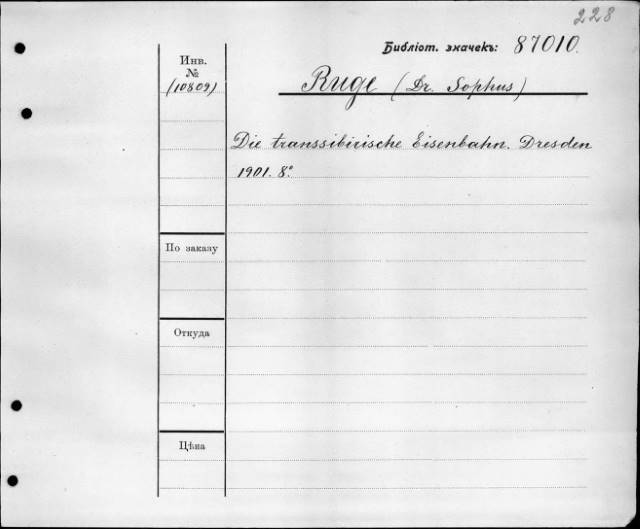 228
Библіот. значекъ: 87010.
Инв.
№
(10809)
Ruge (Dr. Sophus)
Die transsibirische Eisenbahn. Dresden
1901. 8°.
По заказу
Откуда
Цѣна